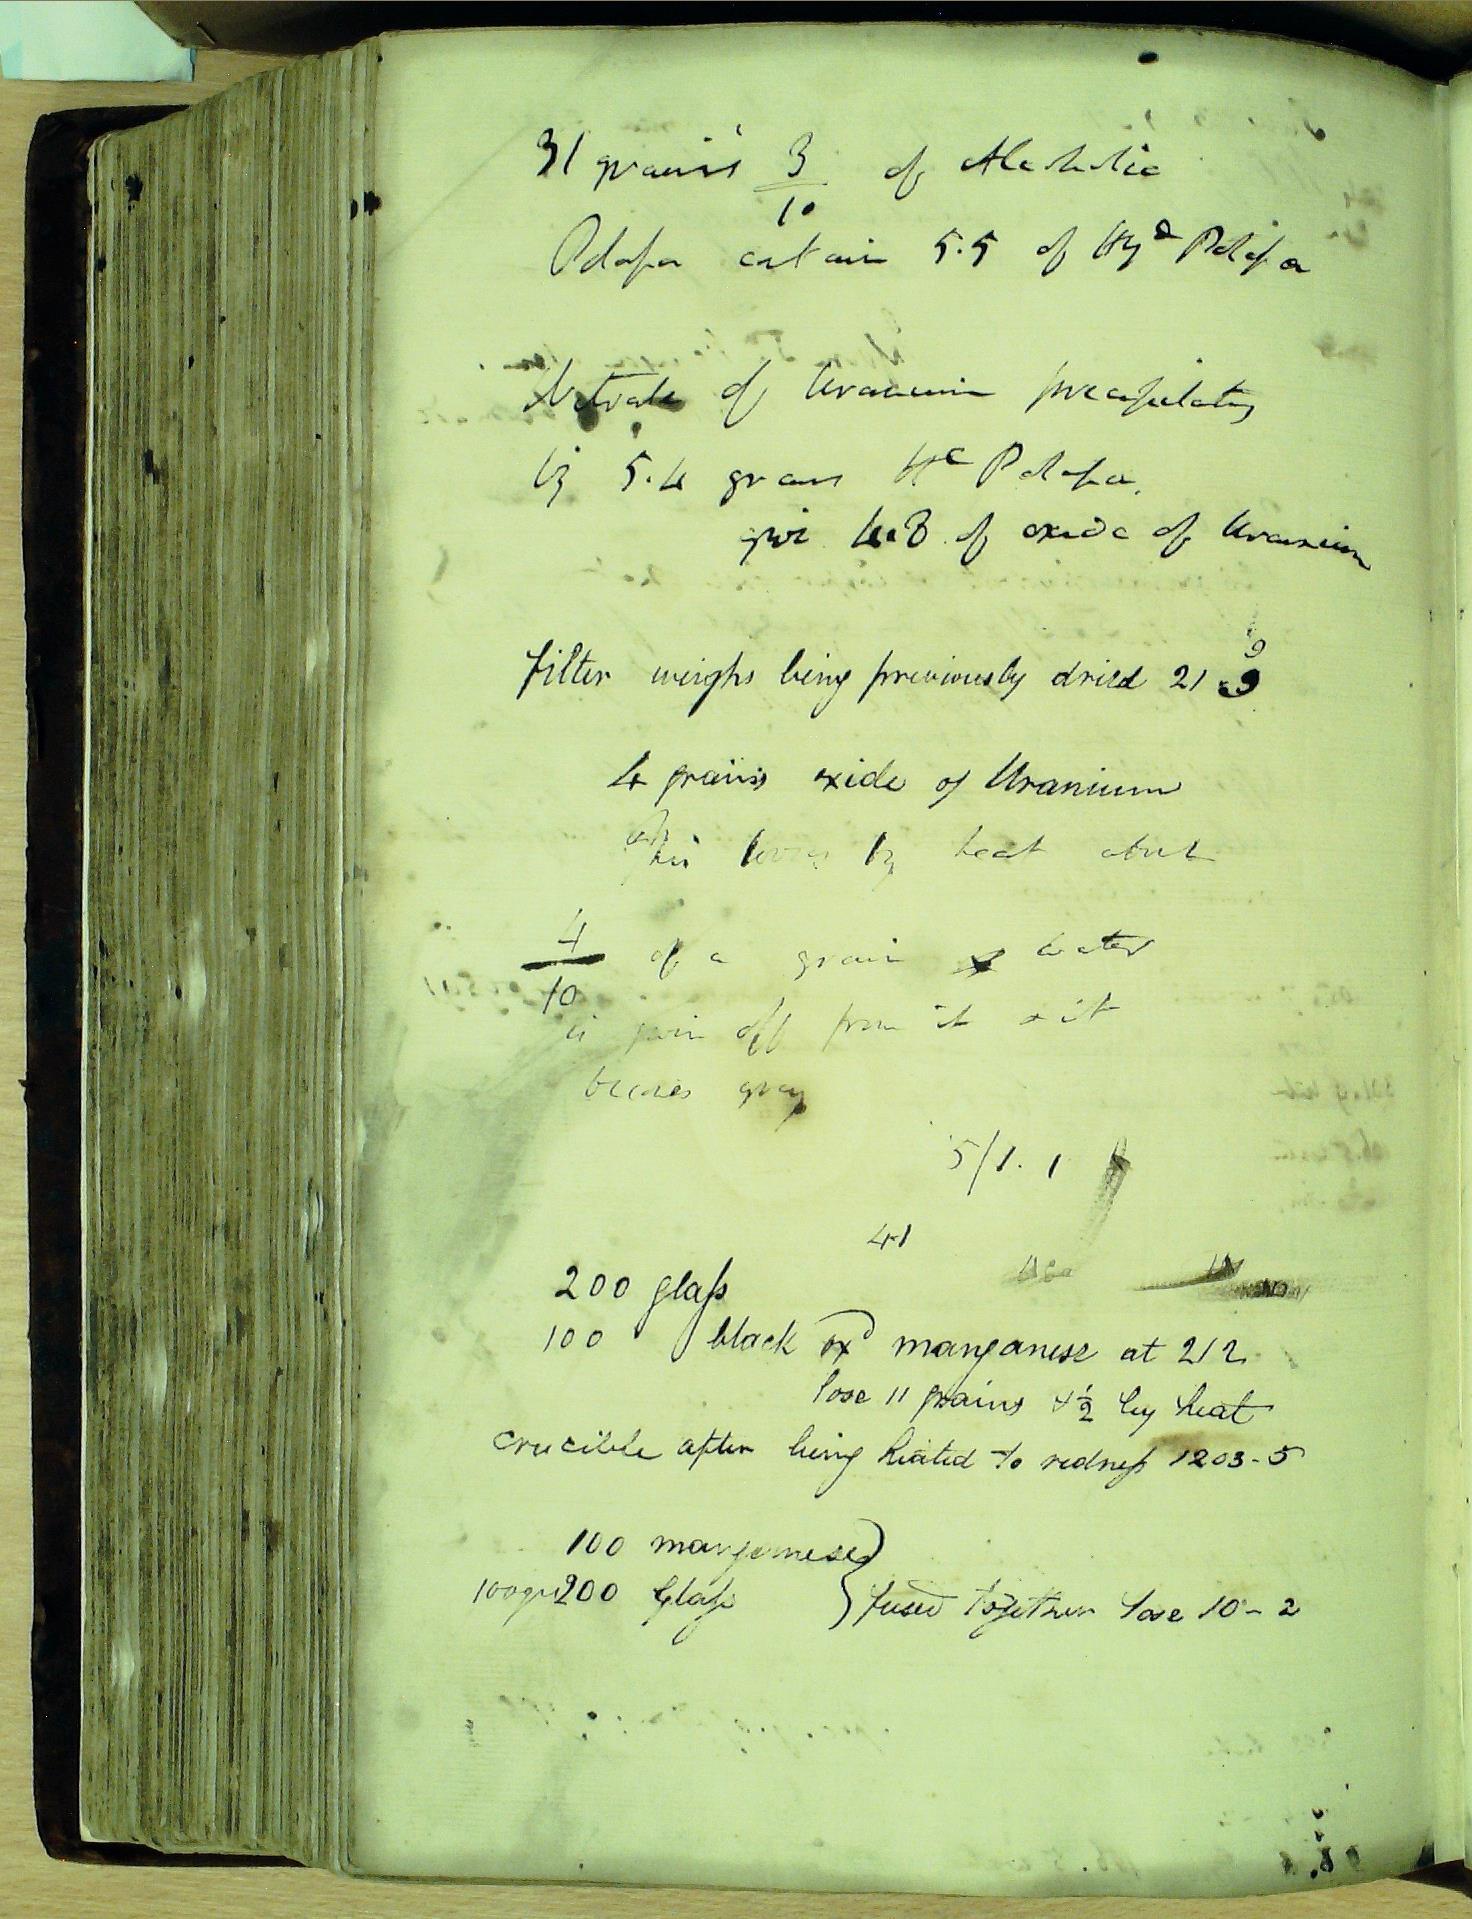 31 grains 3/10 of Alcoholic
Potassa contain 5.5 of Hyᵈ Potassa
Nitrate of Uranium precipitated
by 5.4 grains Hᵉ Potassa
give 4.8 of oxide of Uranium
filter weighs being previously dried 21.9
9
4 grains oxide of Uranium
This loses by heat about
4/10 of a grain & water
is given off from it & it
becomes gray
5/1.1
41
200 glaſs
100 black oxᵈ manganese at 212
lose 11 grains & ½ by heat
crucible after being heated to redneſs 1203-5
100 manganese
100gr 200 Glaſs } fused together lose 10-2